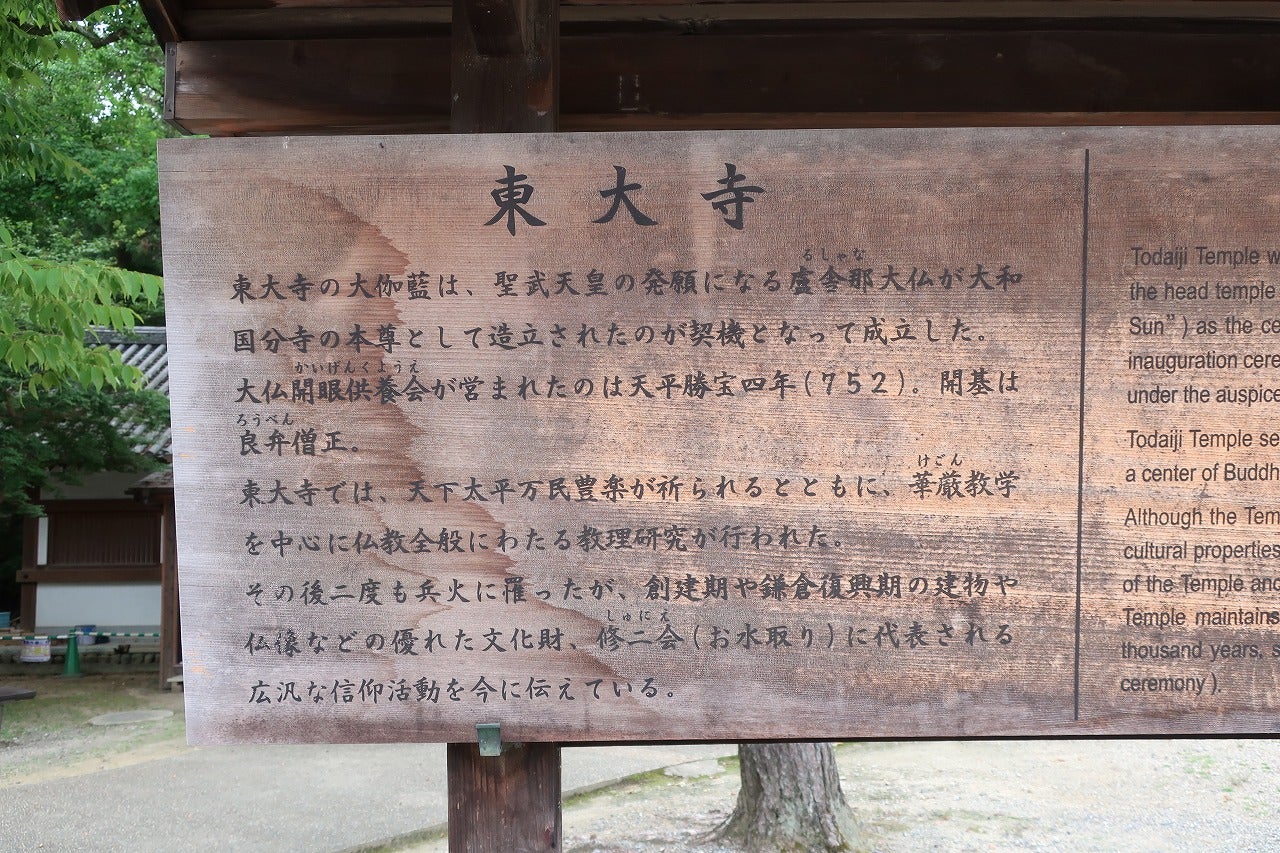 東大寺
るしゃな
東大寺の大伽藍は、聖武天皇の発願になる盧舎那大仏が大和
国分寺の本尊として造立されたのが契機となって成立した。
かいげんくようえ
大仏開眼供養会が営まれたのは天平勝宝四年(752)。開基は
ろうべん
良弁僧正。
けごん
東大寺では、天下太平万民豊楽が祈られるとともに、華厳教学
を中心に仏教全般にわたる教理研究が行われた。
その後二度も兵火に罹ったが、創建期や鎌倉復興期の建物や
しゅにえ
仏像などの優れた文化財、修二会(お水取り)に代表される
広汎な信仰活動を今に伝えている。
Todaiji Temple w
the head temple
Sun") as the ce
inauguration cere
under the auspice
Todaiji Temple se
a center of Buddh
Although the Tem
cultural properties
of the Temple and
Temple maintains
thousand years, s
ceremony).